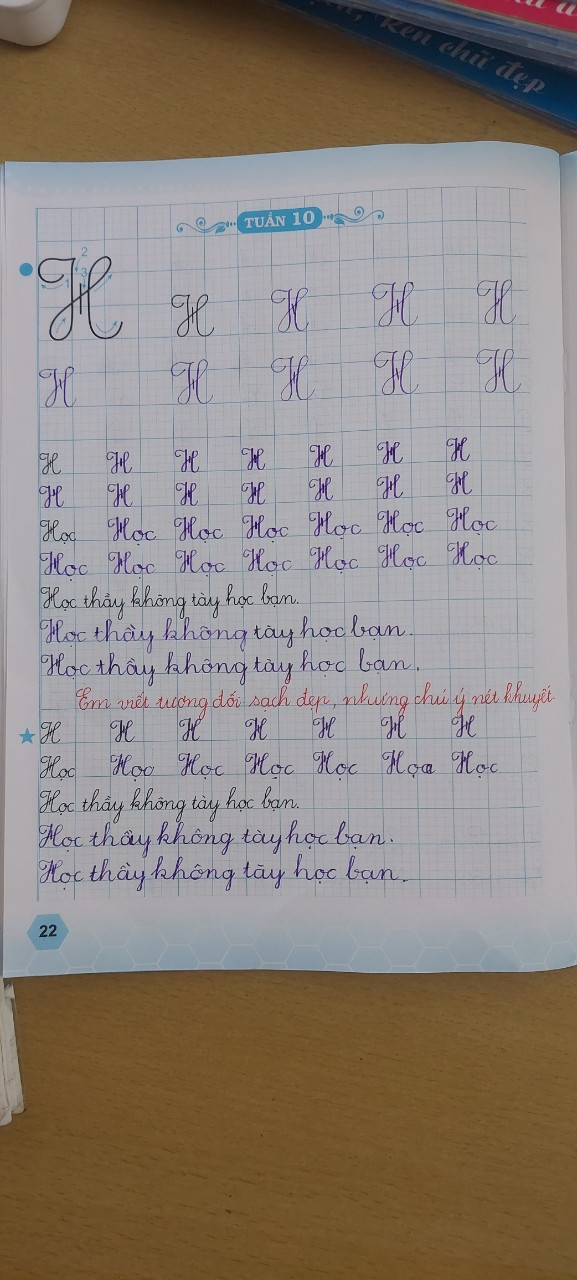 Rèn chữ đẹp
TUẦN 10
1 2 3
H H H H H
H H H H H
H H H H H H H
H H H H H H H
Học Học Học Học Học Học Học
Học Học Học Học Học Học Học
Học thầy không tày học bạn.
Học thầy không tày học bạn.
Học thầy không tày học bạn.
Em viết tương đối sạch đẹp, nhưng chú ý nét khuyết
H H H H H H H
Học Học Học Học Học Họa Học
Học thầy không tày học bạn.
Học thầy không tày học bạn.
Học thầy không tày học bạn.
22